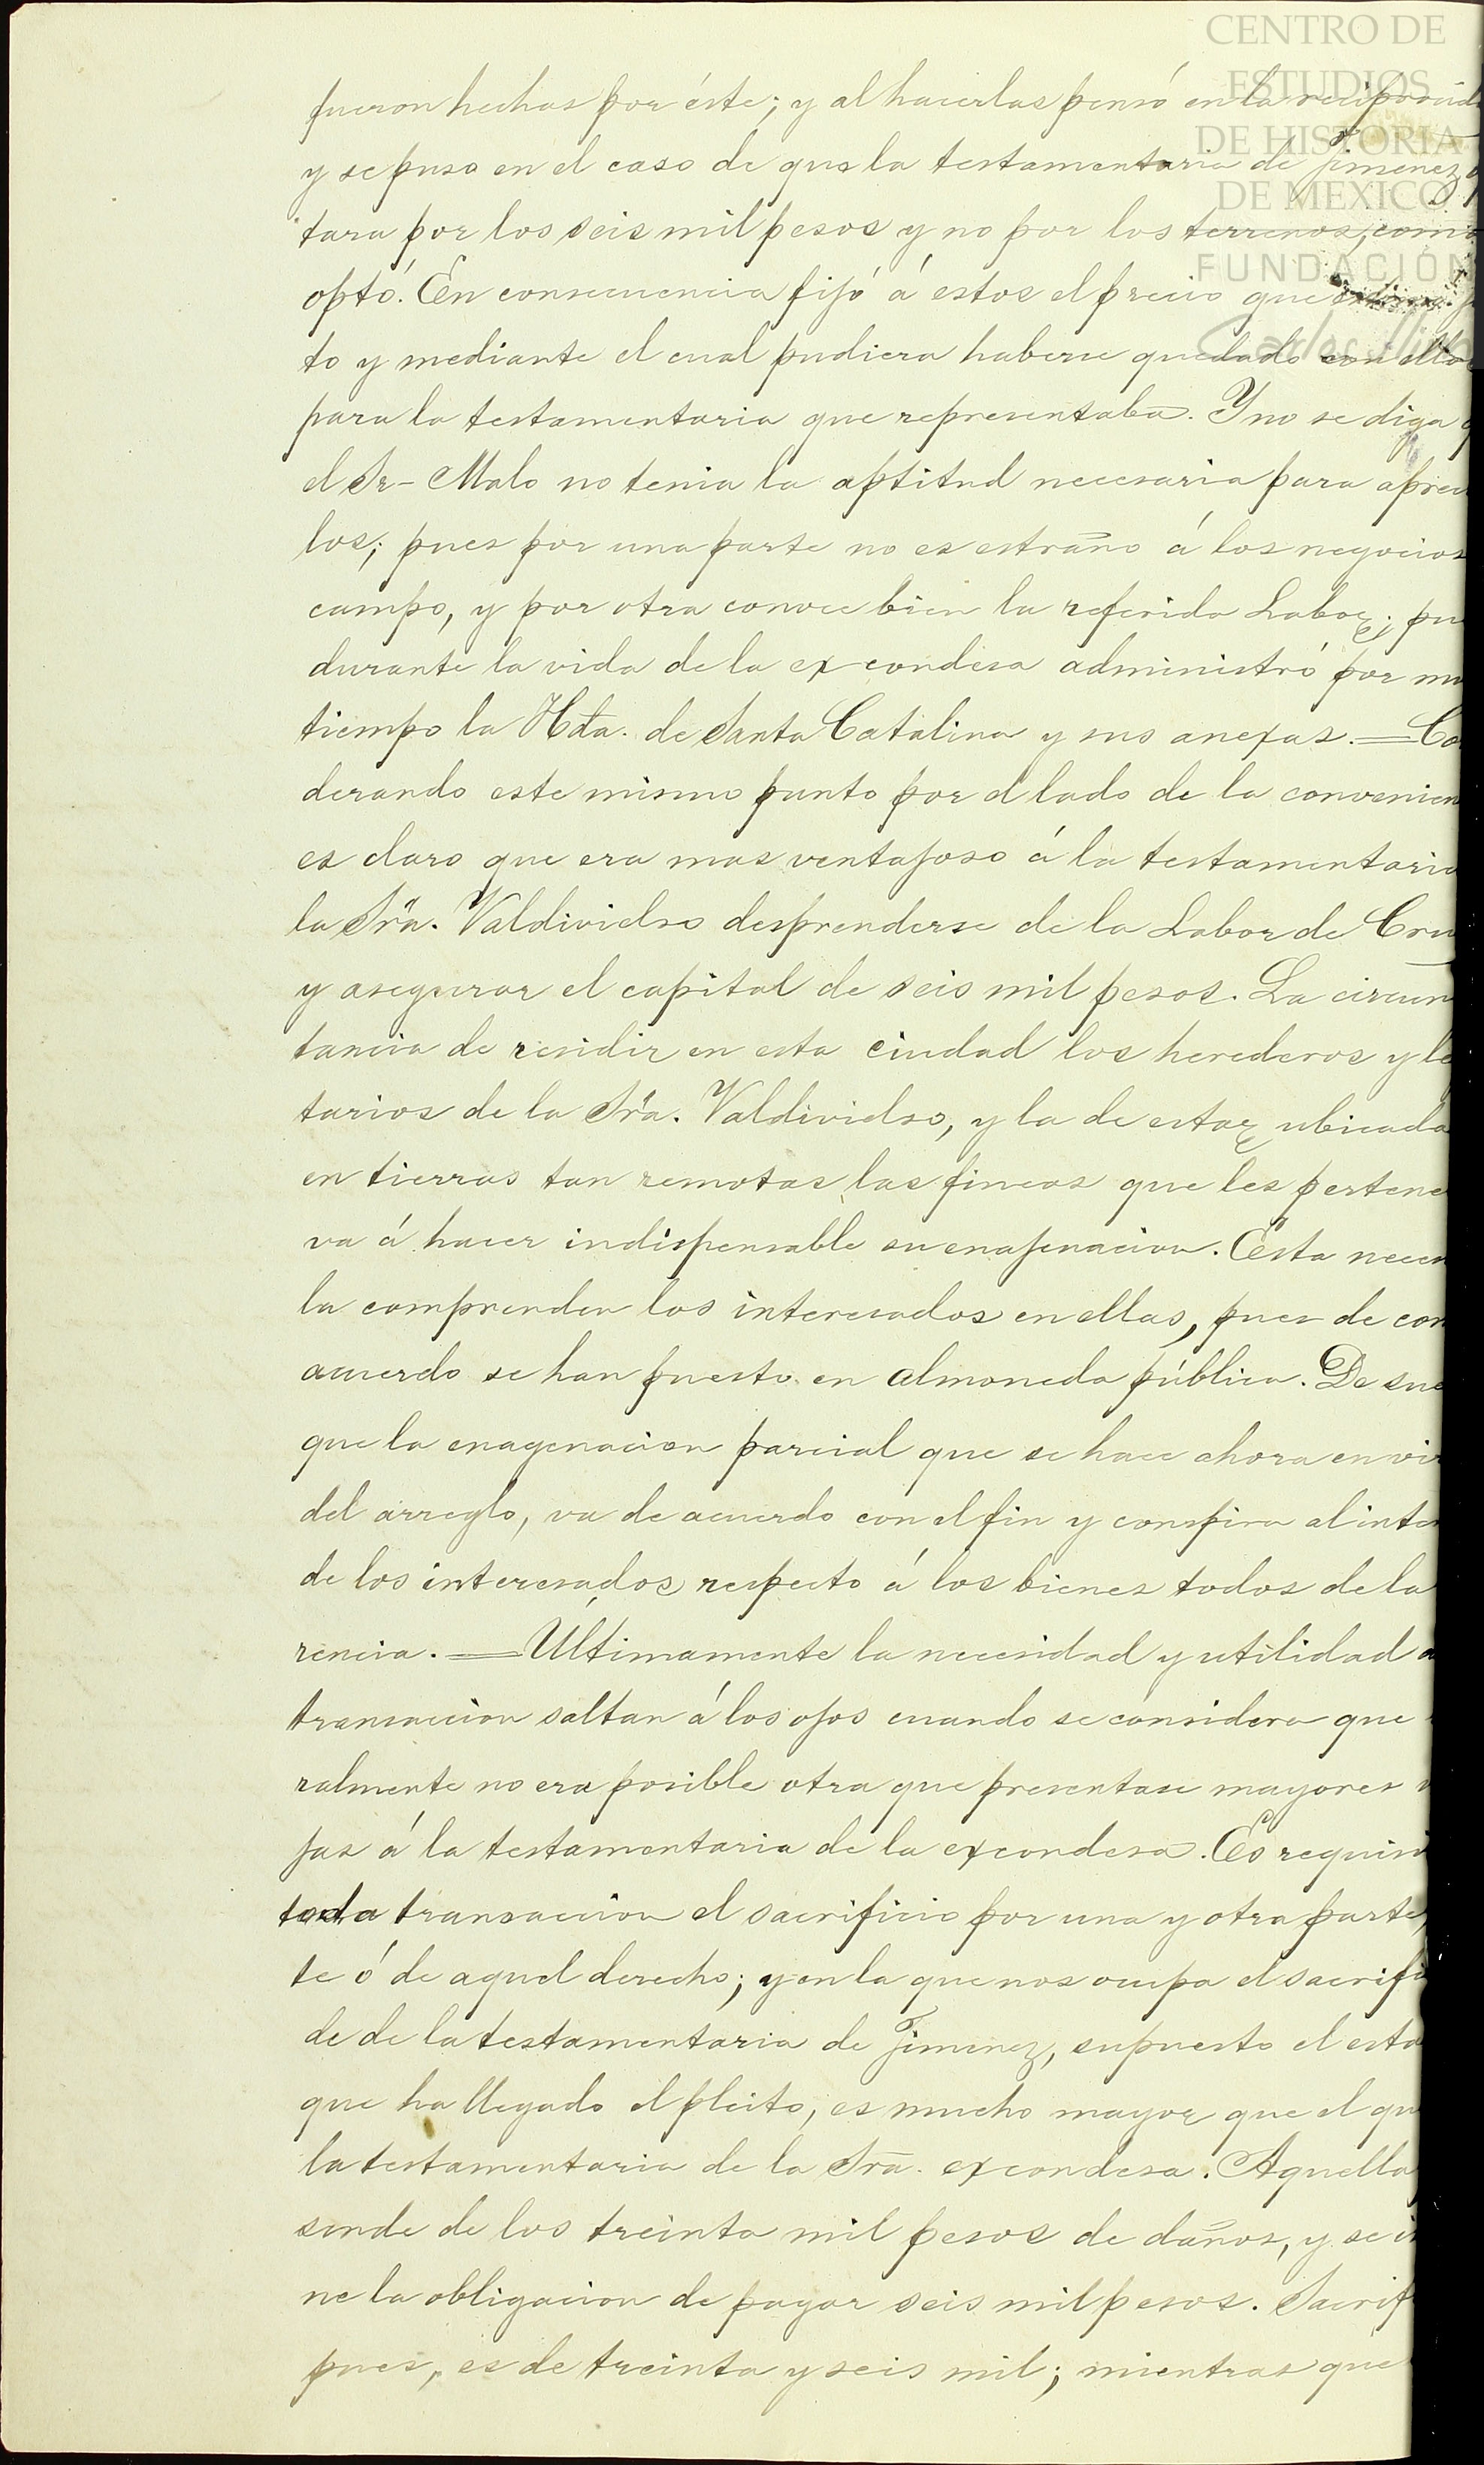 CENTRO DE
ESTUDIOS
DE HISTORIA
DE MEXICO
FUNDACIÓN
fueron hechas por éste; y al hacerlas pensó en la reciprocid
y se puso en el caso de que la testamentaria de Jimenez
tara por los seis mil pesos y no por los terrenos, como
optó. En consecuencia fijó á estos el precio que
to y mediante el cual pudiera haberse quedado con ellos
para la testamentaria que representaba. Y no se diga q
el Sr- Malo no tenia la aptitud necesaria para aprec
los; pues por una parte no es estraño á los negocios
campo, y por otra conoce bien la referida Labor; pu
durante la vida de la ex-condesa administró por mu
tiempo la Hda. de Santa Catalina y sus anexas.=Co
derando este mismo punto por el lado de la convenien
es claro que era mas ventajoso á la testamentaria
la Sra. Valdivielso desprenderse de la Labor de Cru
y asegurar el capital de seis mil pesos. La circun
tancia de residir en esta ciudad los herederos y le
tarios de la Sra. Valdivielso, y la de estar ubicada
en tierras tan remotas las fincas que les pertene
va á hacer indispensable su enajenacion. Esta neces
la comprenden los interesados en ellas, pues de com
acuerdo se han puesto en almoneda pública. De sue
que la enagenacion parcial que se hace ahora en vir
del arreglo, va de acuerdo con el fin y conspira al inte
de los interesados respecto á los bienes todos de la
rencia.=Ultimamente la necesidad y utilidad d
transaccion saltan á los ojos cuando se considera que
ralmente no era posible otra que presentase mayores v
jas á la testamentaria de la excondesa. Es requisi
toda transaccion el sacrificio por una y otra parte,
te ó de aquel derecho; y en la que nos ocupa el sacrifi
de de la testamentaria de Jimenez, supuesto el esta
que ha llegado el pleito, es mucho mayor que el qu
la testamentaria de la Sra. excondesa. Aquella
sinde de los treinta mil pesos de daños, y se i
ne la obligacion de pagar seis mil pesos. Sacrif
pues, es de treinta y seis mil; mientras que